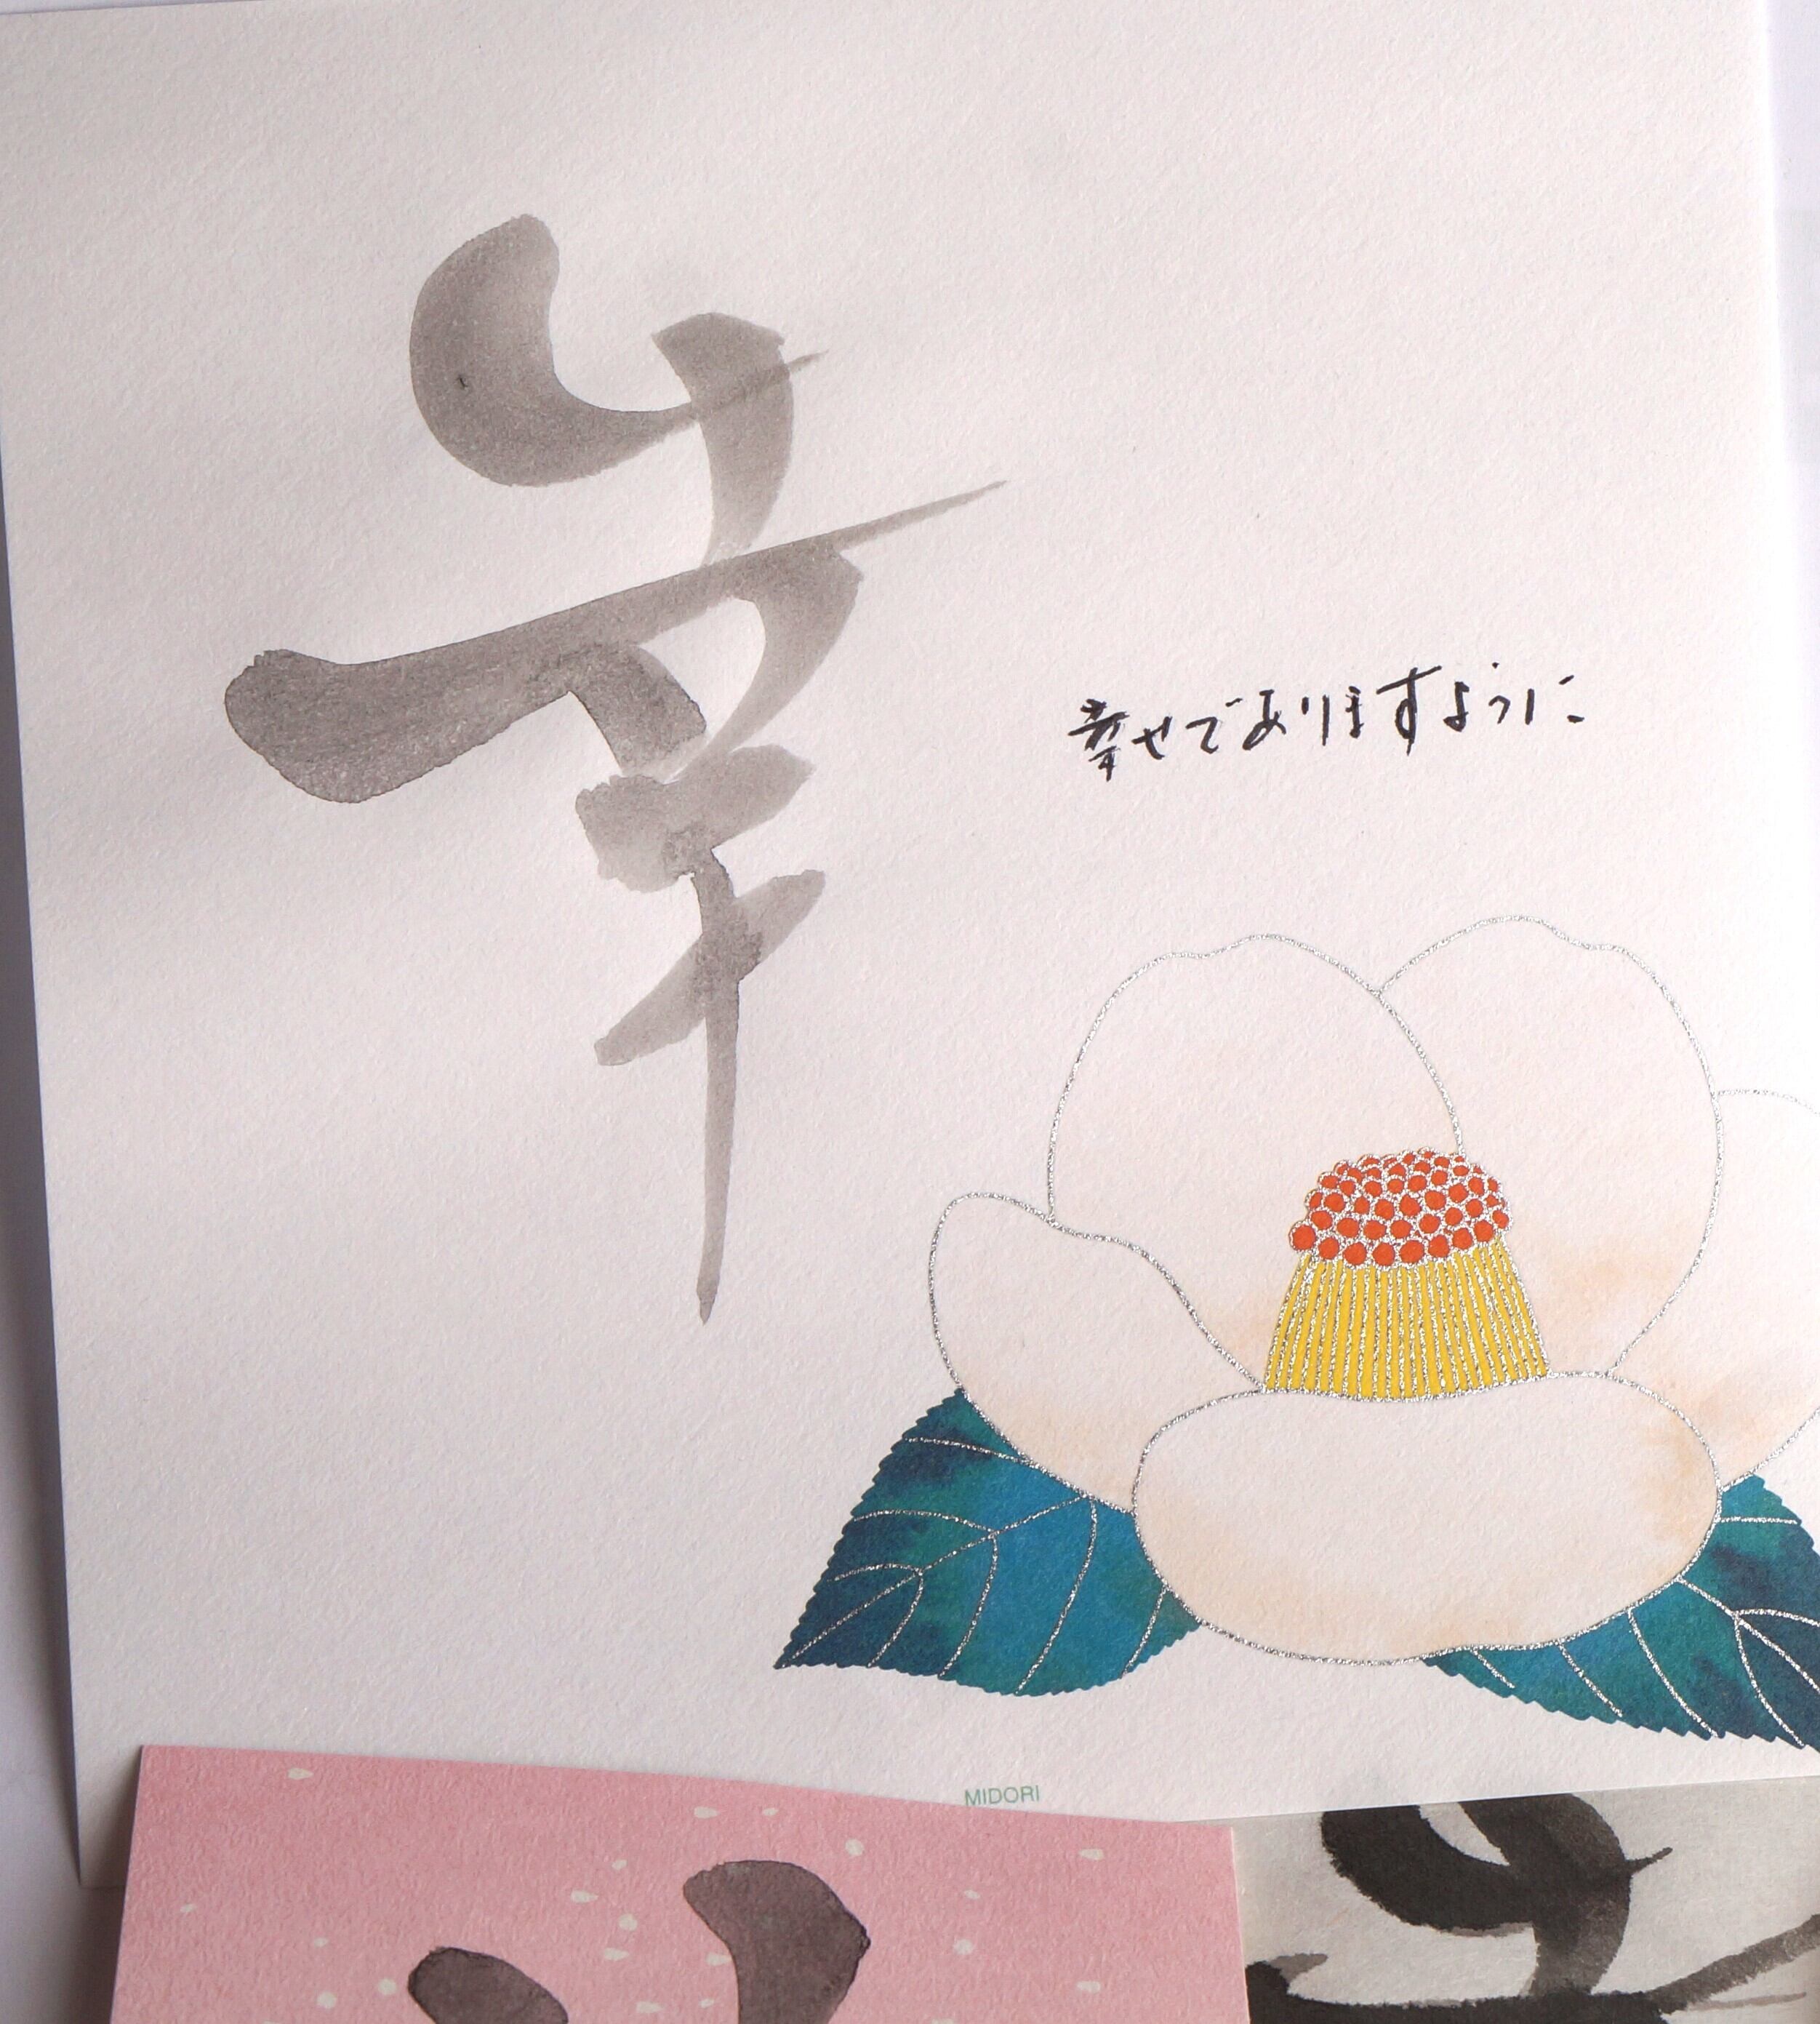 幸
幸せでありますように
MIDORI